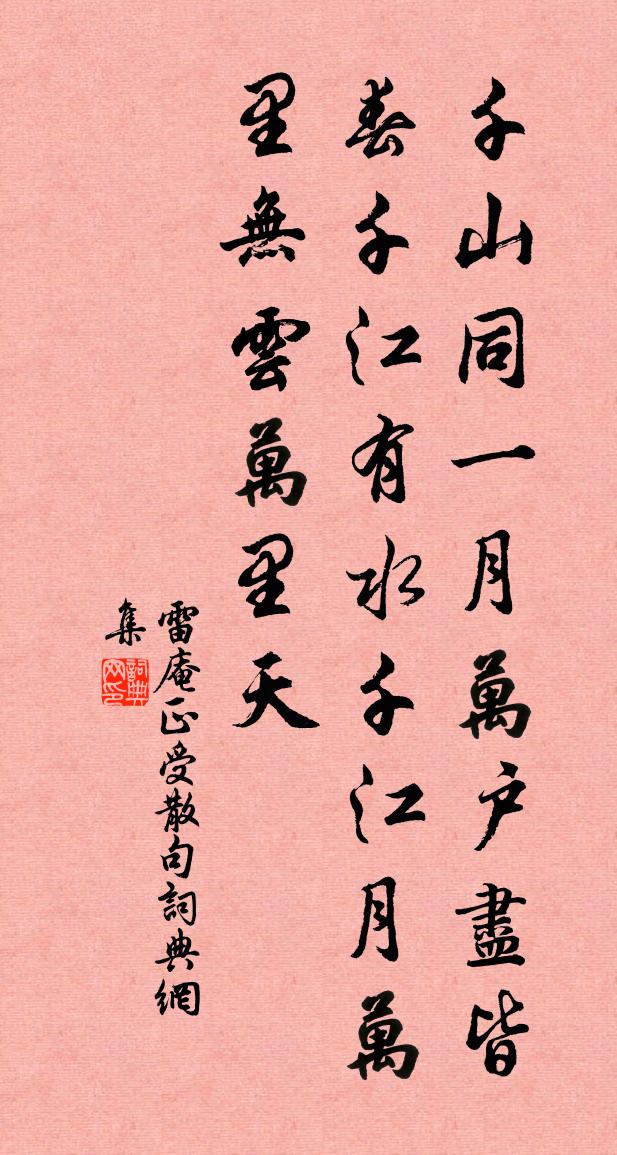 千山同一月萬户盡皆
春千江有水千江月萬
里無雲萬里天
雷庵正受散句詞典網
集
詞典
网印